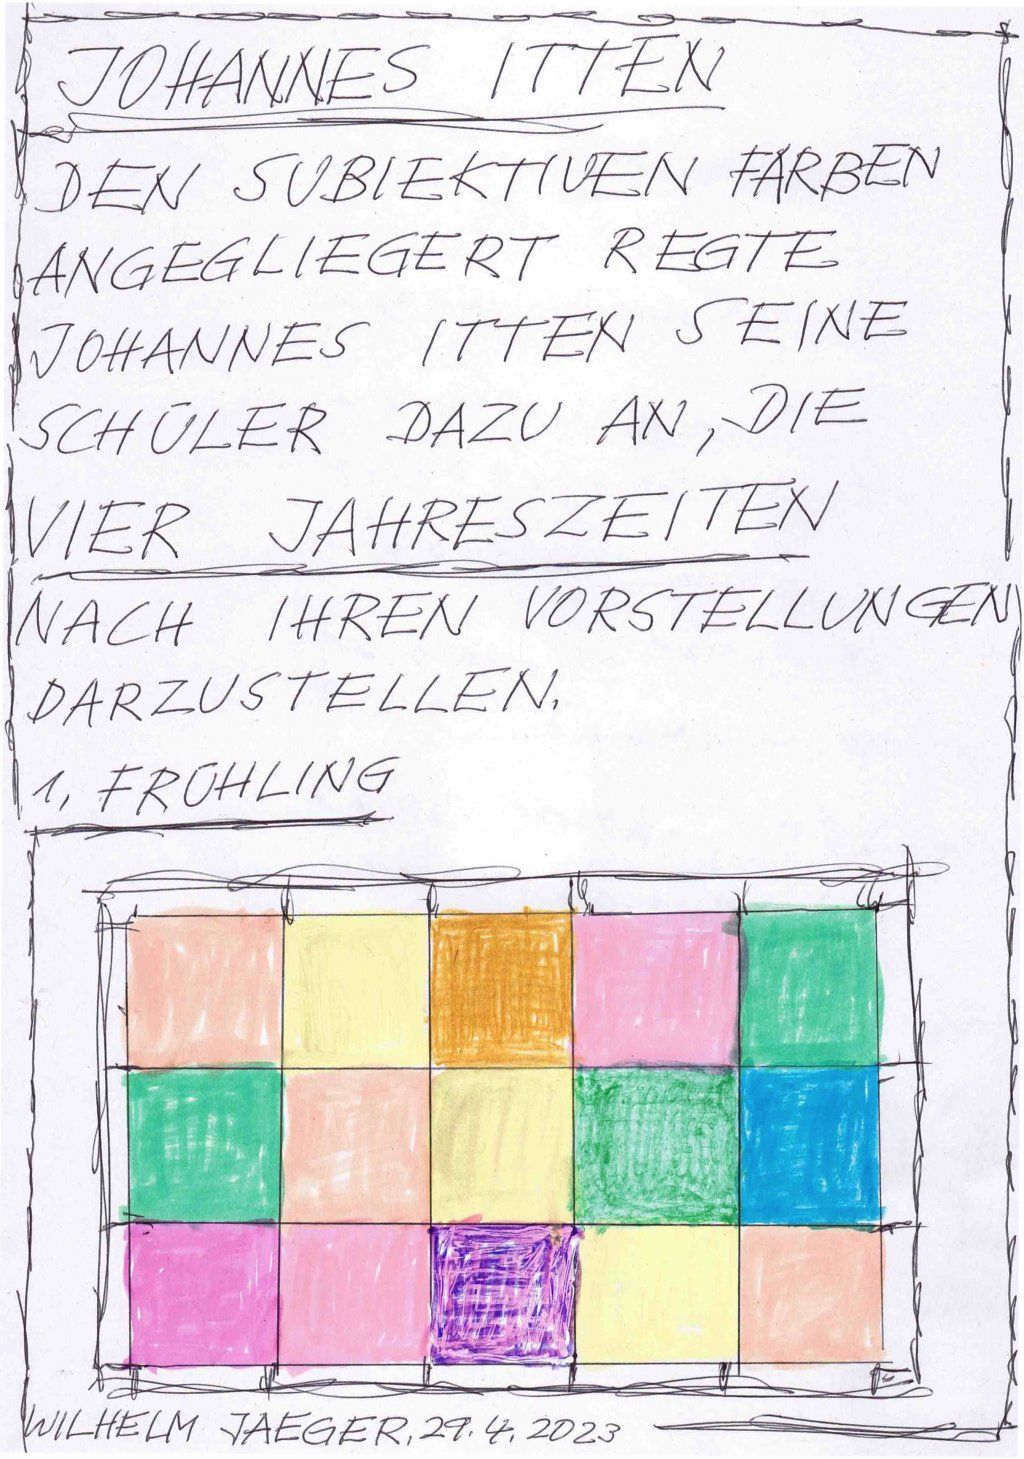 JOHANNES ITTEN
DEN SUBIEKTIVEN FARBEN
ANGEGLIEGERT REGTE
JOHANNES ITTEN SEINE
SCHÜLER DAZU AN, DIE
VIER JAHRESZEITEN
NACH IHREN VORSTELLUNGEN
DARZUSTELLEN.
1, FRÜHLING
WILHELM JAEGER, 29.4.2023